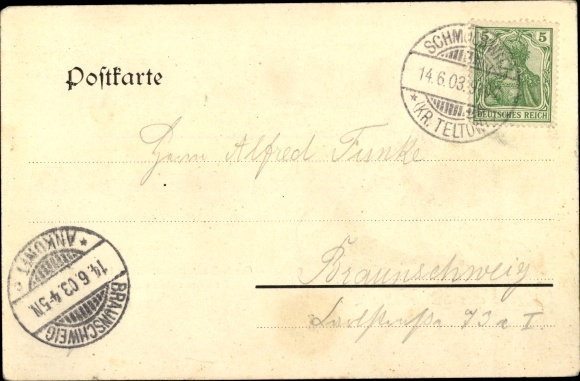 Postkarte
SCHMÖCKWITZ
14.6.03
* (KR. TELTOW)
5 5
DEUTSCHES REICH
Herrn Alfred Funke
Braunschweig
73a I
* ANKUNFT *
14.6.03 4-5N.
BRAUNSCHWEIG